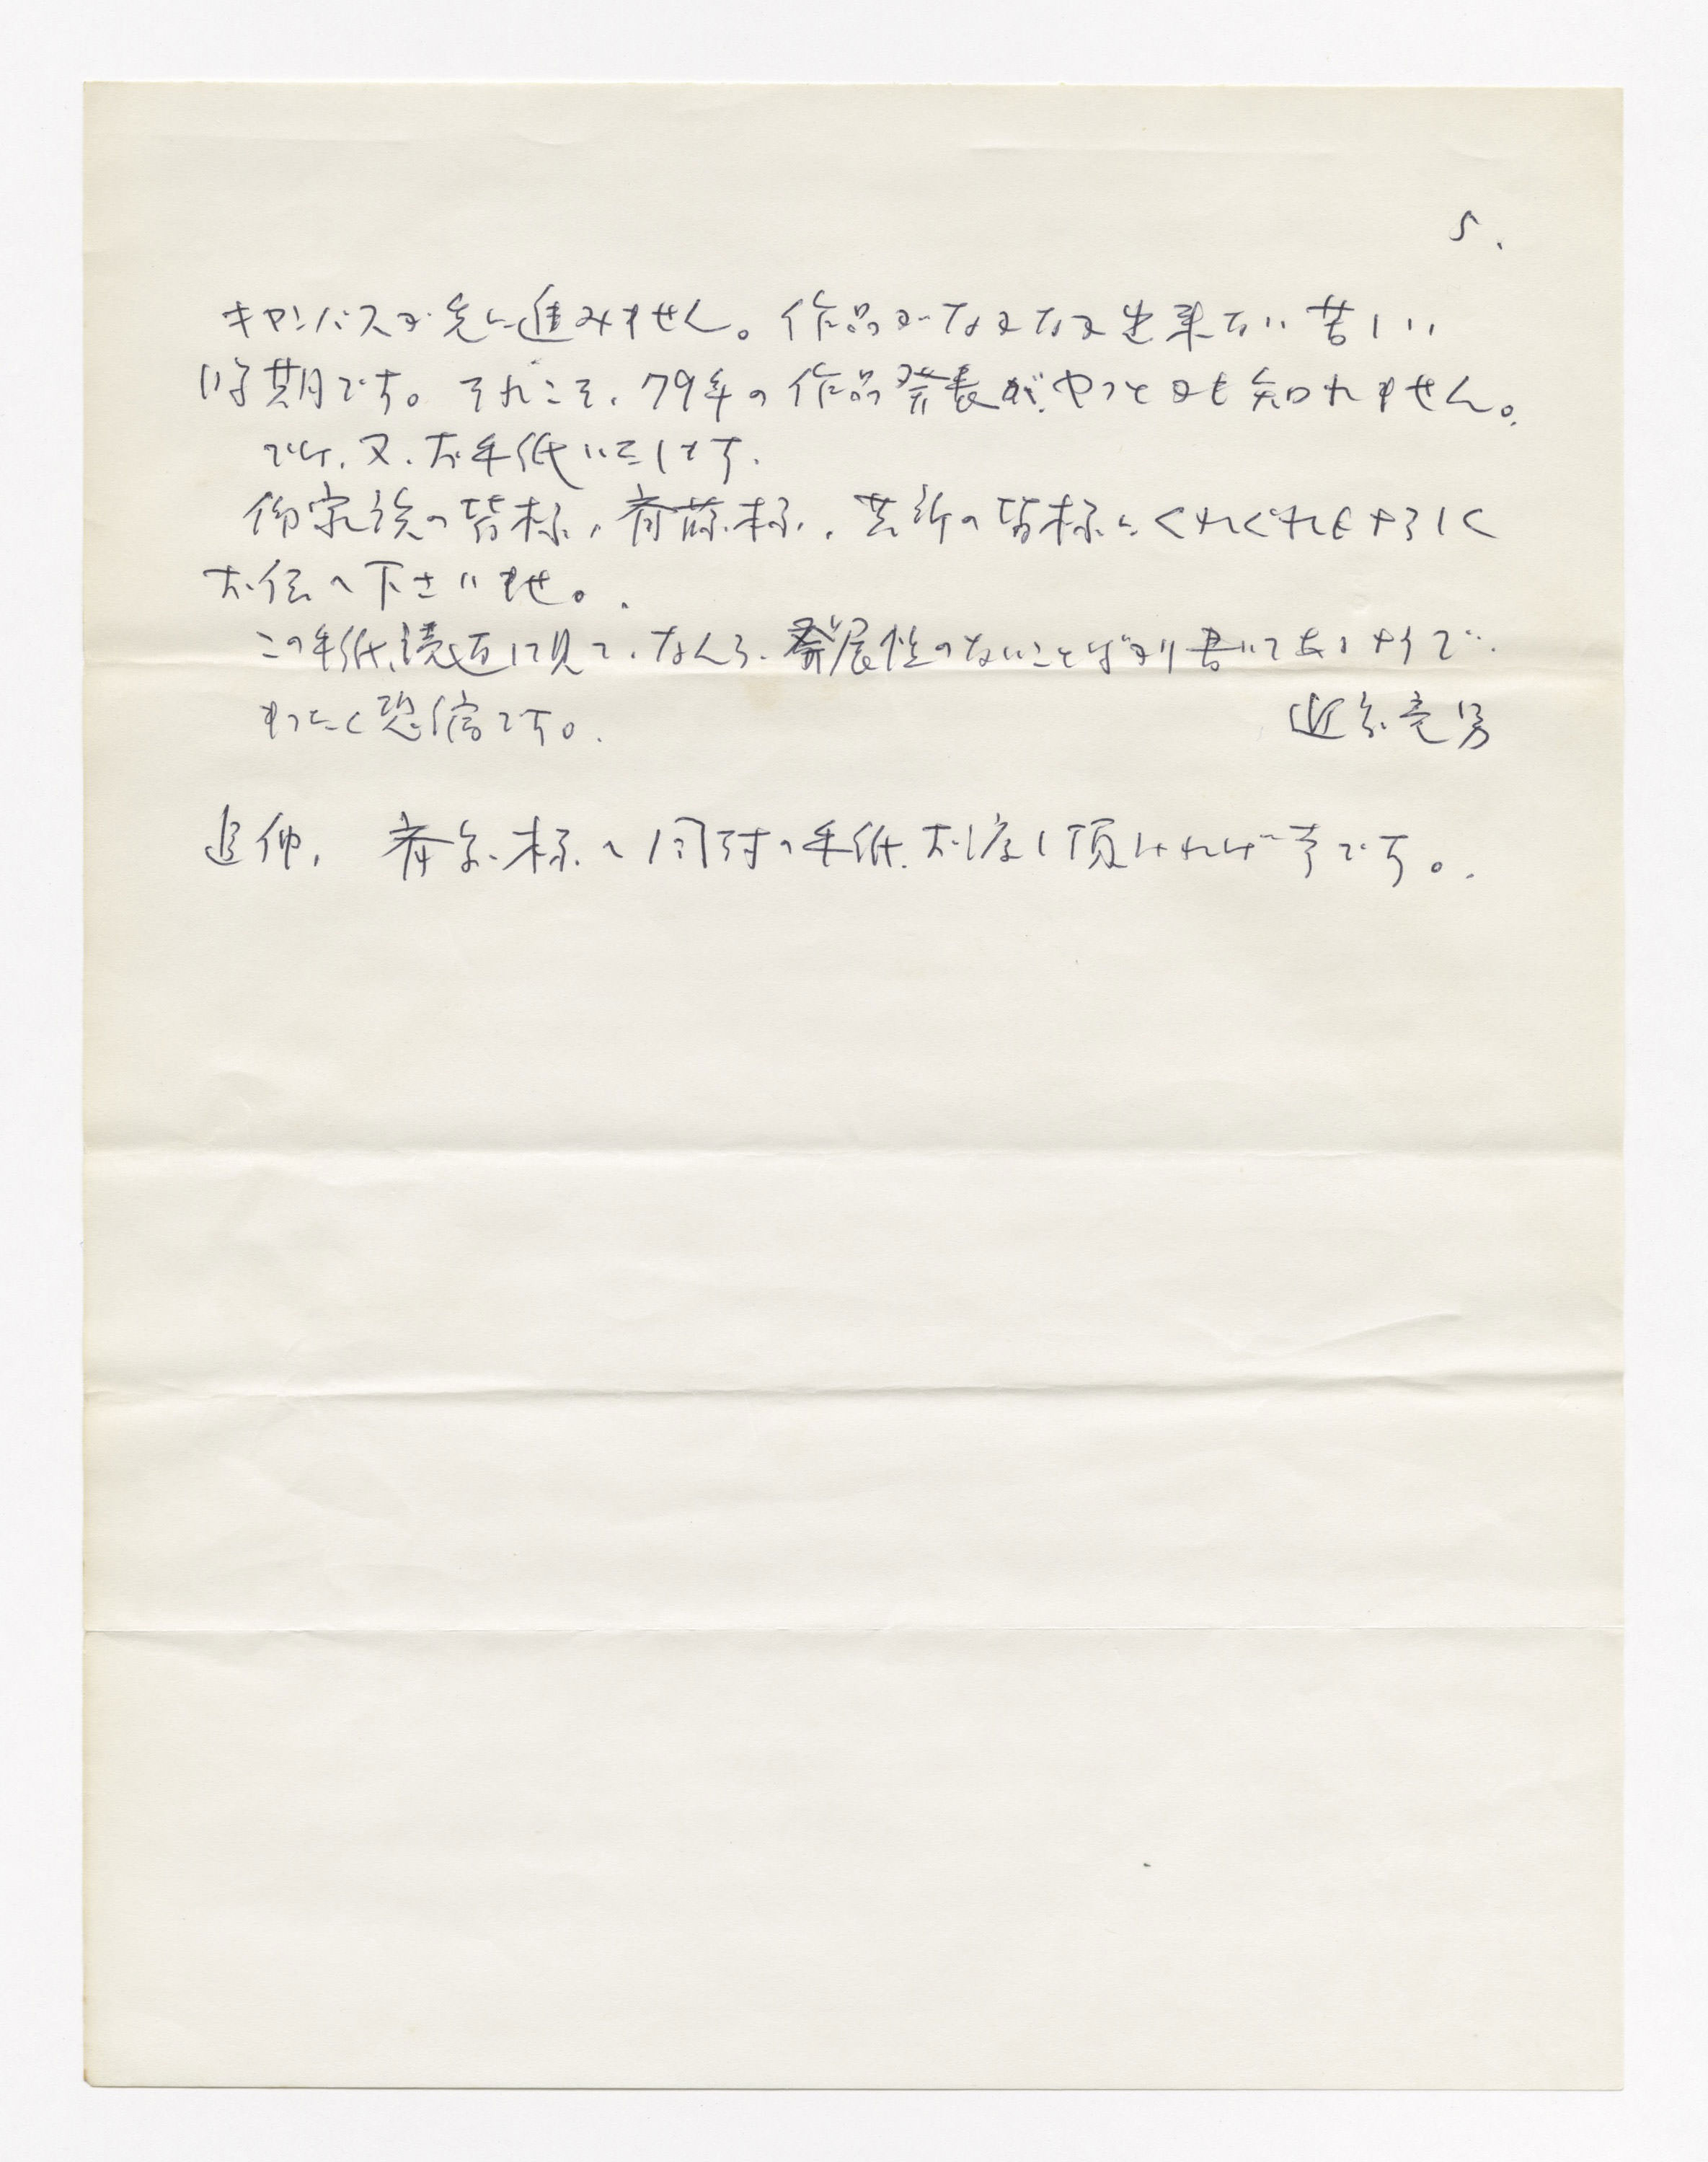 5.
キャンバスが先に進みません。作品がなかなか出来ない苦しい
時期です。それこそ、79年の作品発表が、やっとかも知れません。
では、又、お手紙いたします.
御家族の皆様、斉藤様、の皆様にくれぐれもよろしく
お伝へ下さいませ。
この手紙、読返して見て、なんら、発展性のないことばかり書いてあるようで、
まったく恐縮です。 近藤竜男
追伸、 斉藤様へ同封の手紙、お渡し頂ければ幸です。